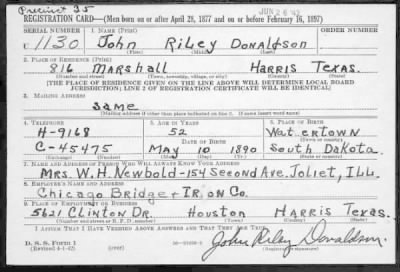 Precinct 35
JUN 26 42
REGISTRATION CARD—(Men born on or after April 28, 1877 and on or before February 16, 1897)
SERIAL NUMBER 1. NAME (Print) ORDER NUMBER
U 1130 John Riley Donaldson
(First) (Middle) (Last)
2. PLACE OF RESIDENCE (Print)
816 Marshall Harris Texas.
(Number and street) (Town, township, village, or city) (County) (State)
[THE PLACE OF RESIDENCE GIVEN ON THE LINE ABOVE WILL DETERMINE LOCAL BOARD
JURISDICTION; LINE 2 OF REGISTRATION CERTIFICATE WILL BE IDENTICAL]
3. MAILING ADDRESS
Same
[Mailing address if other than place indicated on line 2. If same insert word same]
4. TELEPHONE 5. AGE IN YEARS 6. PLACE OF BIRTH
H-9168 52 Watertown
DATE OF BIRTH (Town or county)
C-45475 May 10 1890 South Dakota.
(Exchange) (Number) (Mo.) (Day) (Yr.) (State or country)
7. NAME AND ADDRESS OF PERSON WHO WILL ALWAYS KNOW YOUR ADDRESS
Mrs. W. H. Newbold-154 Second Ave. Joliet, Ill.
8. EMPLOYER'S NAME AND ADDRESS
Chicago Bridge + Iron Co.
9. PLACE OF EMPLOYMENT OR BUSINESS
5621 Clinton Dr. Houston Harris Texas.
(Number and street or R. F. D. number) (Town) (County) (State)
I AFFIRM THAT I HAVE VERIFIED ABOVE ANSWERS AND THAT THEY ARE TRUE.
D. S. S. Form 1
(Revised 4-1-42) John Riley Donaldson